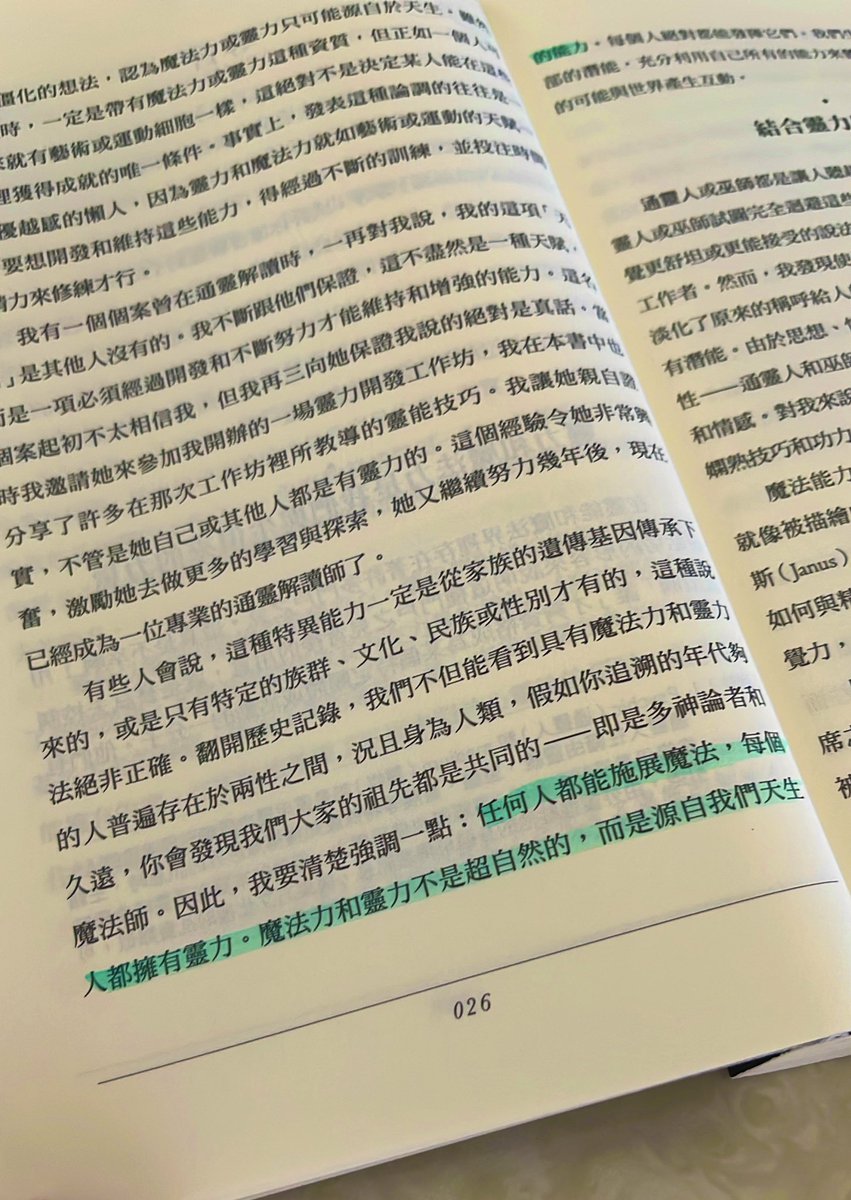 僵化的想法，認為魔法力或靈力只可能源自於天生。
時，一定是帶有魔法力或靈力這種資質，但正如一個人
來就有藝術或運動細胞一樣，這絕對不是決定某人能在這些
裡獲得成就的唯一條件。事實上，發表這種論調的往往是
優越感的懶人，因為靈力和魔法力就如藝術或運動的天賦，
要想開發和維持這些能力，得經過不斷的訓練，並投注時間
精力來修練才行。
我有一個個案曾在通靈解讀時，一再對我說，我的這項「天
」是其他人沒有的。我不斷跟他們保證，這不盡然是一種天賦，
而是一項必須經過開發和不斷努力才能維持和增強的能力。這名
個案起初不太相信我，但我再三向她保證我說的絕對是真話。當
時我邀請她來參加我開辦的一場靈力開發工作坊，我在本書中也
分享了許多在那次工作坊裡所教導的靈能技巧。我讓她親自證
實，不管是她自己或其他人都是有靈力的。這個經驗令她非常興
奮，激勵她去做更多的學習與探索，她又繼續努力幾年後，現在
已經成為一位專業的通靈解讀師了。
有些人會說，這種特異能力一定是從家族的遺傳基因傳承下
來的，或是只有特定的族群、文化、民族或性別才有的，這種說
法絕非正確。翻開歷史記錄，我們不但能看到具有魔法力和靈力
的人普遍存在於兩性之間，況且身為人類，假如你追溯的年代夠
久遠，你會發現我們大家的祖先都是共同的——即是多神論者和
魔法師。因此，我要清楚強調一點：任何人都能施展魔法，每個
人都擁有靈力。魔法力和靈力不是超自然的，而是源自我們天生
026
的能力，每個人絕對都能發揮它們。我們
部的潛能，充分利用自己所有的能力來
的可能與世界產生互動。
結合靈力
通靈人或巫師都是讓人
靈人或巫師試圖完全迴避這些
覺更舒坦或更能接受的說法
工作者。然而，我發現使
淡化了原來的稱呼給人
有潛能。由於思想、
性——通靈人和巫師
和情感。對我來說
嫻熟技巧和功力
魔法能力
就像被描繪
斯（Janus）
如何與精
覺力，
席
被